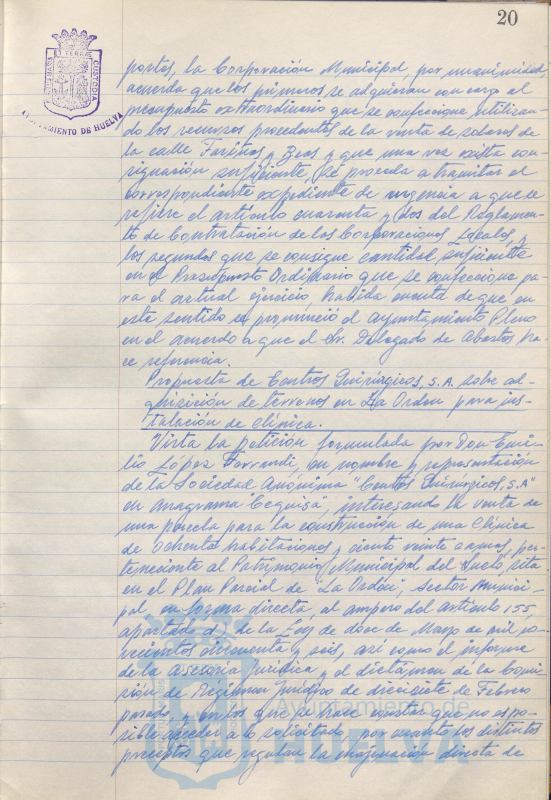 20
AYUNTAMIENTO DE HUELVA
portes, la Corporación Municipal, por unanimidad,
acuerda que los primeros se adquieran con cargo al
presupuesto extraordinario que se confeccione utilizan-
do los recursos procedentes de la venta de solares de
la calle Fariñas y Beas y que una vez exista con-
signación suficiente, se proceda a tramitar el
correspondiente expediente de urgencia a que se
refiere el artículo cuarenta y dos del Reglamen-
to de Contratación de las Corporaciones Locales, y
los segundos que se consigne cantidad suficiente
en el Presupuesto Ordinario que se confeccione pa-
ra el actual ejercicio, habida cuenta de que en
este sentido se pronunció el Ayuntamiento Pleno
en el acuerdo a que el Sr. Delegado de Abastos ha-
ce referencia.
Propuesta de Centros Quirúrgicos, S.A. sobre ad-
quisición de terrenos en La Orden para ins-
talación de clínica.
Vista la petición formulada por Don Emi-
lio López en nombre y representación
de la Sociedad Anónima "Centros Quirúrgicos, S.A"
en anagrama "Cequisa", interesando la venta de
una parcela para la construcción de una Clínica
de ochenta habitaciones y ciento veinte camas, per-
teneciente al Patrimonio Municipal del Suelo, sita
en el Plan Parcial de "La Orden", Sector Munici-
pal, en forma directa, al amparo del artículo 155,
apartado d) de la Ley de doce de Mayo de mil no-
vecientos cincuenta y seis, así como el informe
de la Asesoría Jurídica y el dictamen de la Comi-
sión de Régimen Jurídico de diecisiete de Febrero
pasado, y en los que se hace constar que no es po-
sible acceder a lo solicitado, por cuanto los distintos
preceptos que regulan la enajenación directa de
Ayuntamiento de
HUELVA